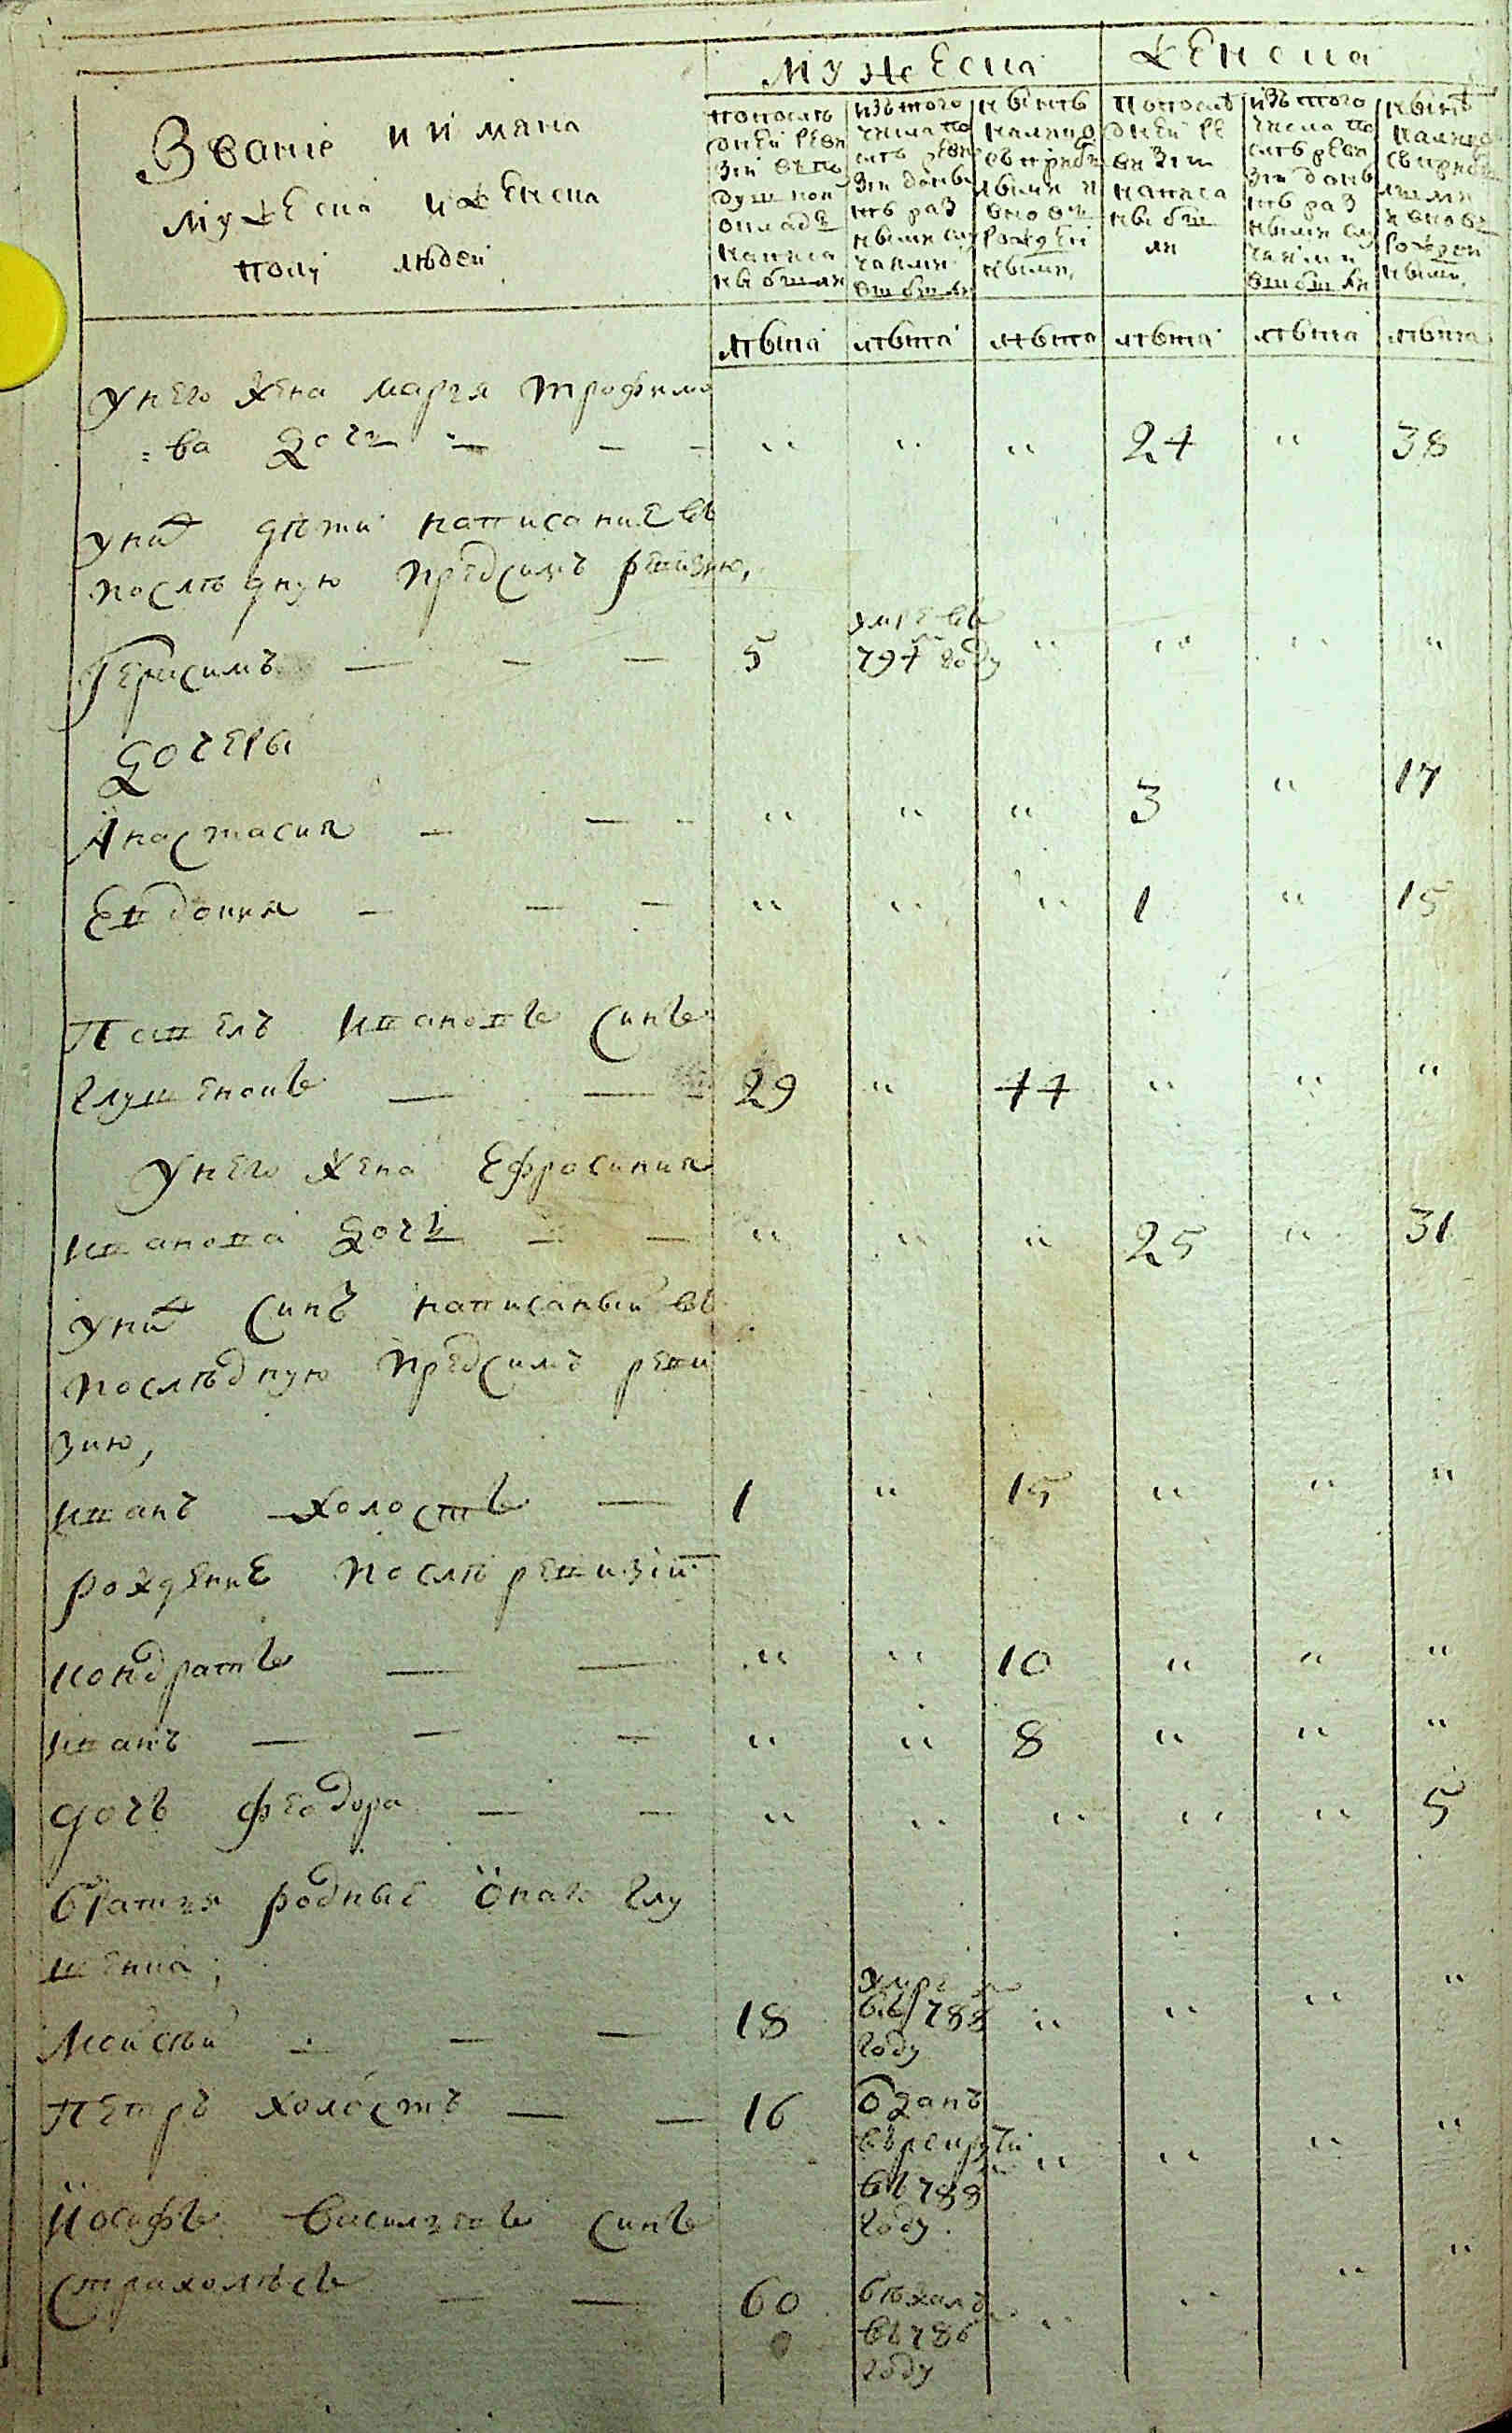 Мужеска
Женска
Званіе и имяна
мужеска и женска
полу людей
по послѣ
дней реви
зіи въ по
душ ном
окладѣ
написа
ны были
изъ того
числа по
слѣ реви
зіи до нынѣ
раз
ными слу
чаями
отбыли
нынѣ
на лицо
съ прибы
лыми и
вновь
рожден
ными,
по послѣ
дней ре
визіи
написа
ны бы
ли
изъ того
числа по
слѣ реви
зіи до нынѣ
раз
ными слу
чаями
отбыли
нынѣ
на лицо
съ прибы
лыми
и вновь
рожден
ными,
лѣта лѣта лѣта лѣта лѣта лѣта
У него жена Марʼя Трофимо
=ва дочь — — — " " " 24 " 38
У них дѣти написание въ
послѣдную пред симъ ревизию,
Герасимъ — — — 5 умре въ 794 году " " " "
Дочеры
Анастасия — — — " " " 3 " 17
Евдокия — — — " " " 1 " 15
Павелъ Ивановъ синъ
Глушенокъ — — — 29 " 44 " " "
У него жена Ефросиния
Иванова дочь — — " " " 25 " 31
У них синъ написаный въ
послѣдную предсимъ реви
зию,
Иванъ холостъ — 1 " 15 " " "
рождение послѣ ревизіи
Кондратъ — — " " 10 " " "
Иванъ — — — " " 8 " " "
дочь Феодора — — " " " " " 5
Братья родные онаго Глу
шенка;
Мойсей — — — 18 умре въ 788 году " " " "
Петръ холостъ — — 16 одданъ въ рекруты въ 788 году. " " " "
Иосифъ Василиевъ синъ
Страхолѣсъ — — 60 бѣжалъ въ 786 году " " " "